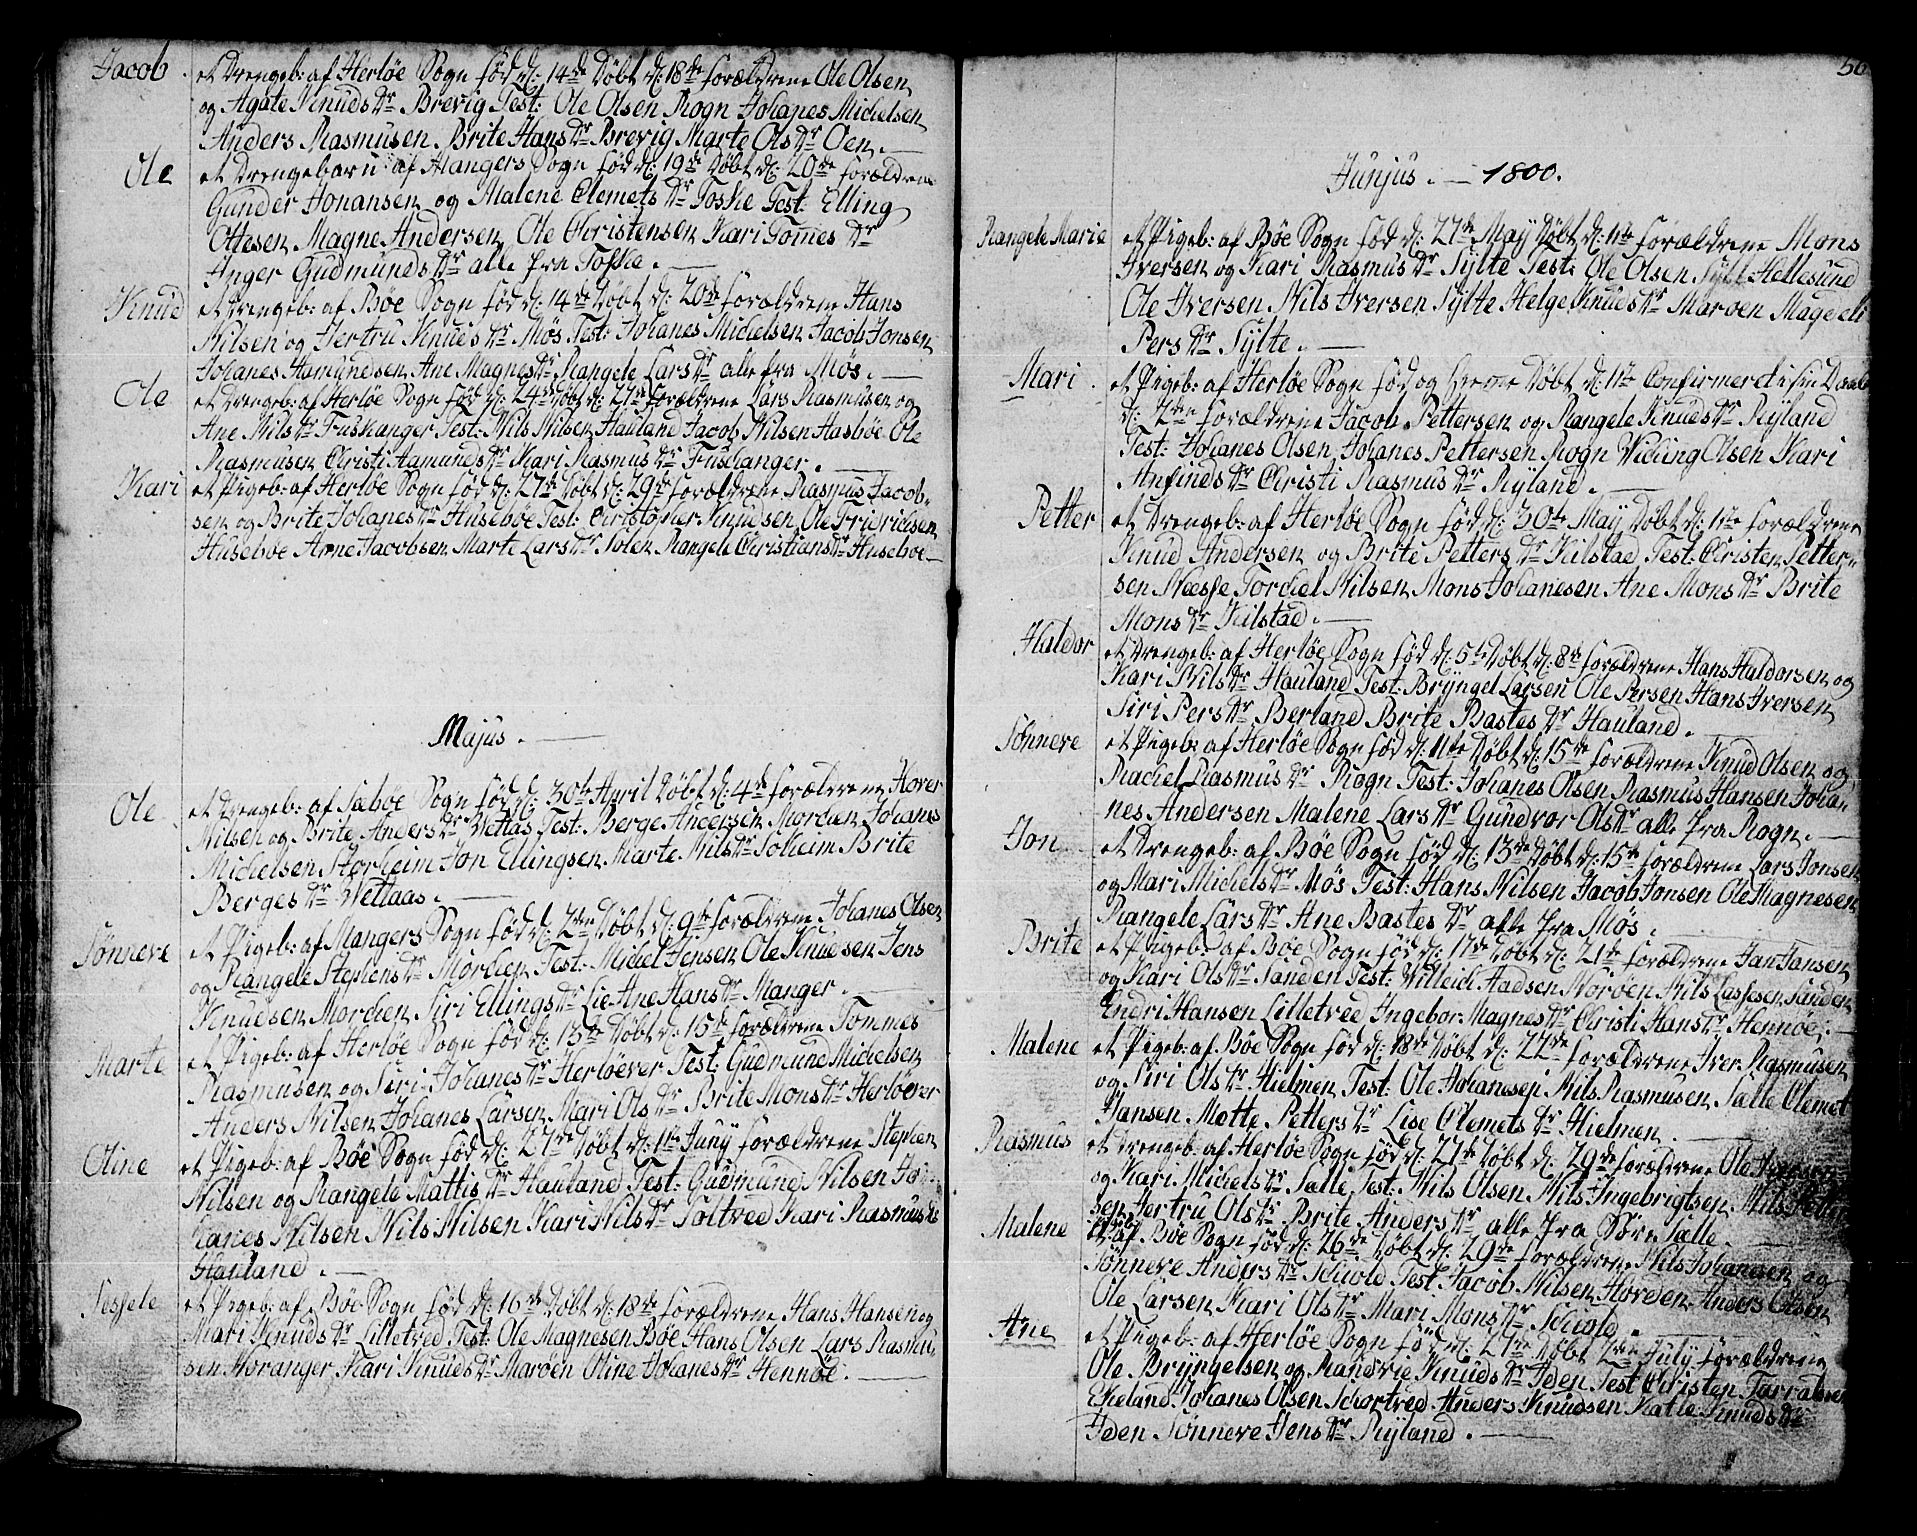 Jacob. et Drengeb: af Herløe Sogn fød d: 14de Døbt d: 18de forældrene Ole Olsen
og Agate Knuds Dr Brevig Test: Ole Olsen Rogn Johanes Michelsen
Anders Rasmusen Brite Hans Dr Brevig Marte Ols Dr Oen.
Ole et Drengebarn af Mangers Sogn fød d: 19de Døbt d: 20de forældrene
Gunder Johansen og Malene Clemets Dr Toske Test: Elling
Ottesen Magne Andersen Ole Christensen Kari Tommes Dr
Anger Gudmunds Dr alle fra Toske.
Knud et Drengeb: af Bøe Sogn fød d: 14de Døbt d: 20de forældrene Hans
Nilsen og Jertru Knuds Dr Møs Test: Johanes Michelsen Jacob Jonsen
Johanes Hamundsen Ane Magnes Dr Rangele Lars Dr alle fra Møs.
Ole et Drengeb: af Herløe Sogn fød d: 24de Døbt d: 27de forældrene Lars Rasmusen og
Ane Nils Dr Fuskanger Test: Nils Nilsen Hauland Jacob Nilsen Hasbøe Ole
Rasmusen Christi Aamunds Dr Kari Rasmus Dr Fuskanger.
Kari et Pigeb: af Herløe Sogn fød d: 27de Døbt d: 29de forældrene Rasmus Jacob-
sen og Brite Johanes Dr Husebøe Test: Christopher Knudsen Ole Fridrichsen
Husebøe Arne Jacobsen Marte Lars Dr Tolen Rangele Christians Dr Husebøe
Majus.
Ole et Drengeb: af Sæboe Sogn fød d: 30te April Døbt d: 4de forældrene Hover
Nilsen og Brite Anders Dr Vetlas Test: Berge Andersen Morchen Johanes
Michelsen Storheim Jon Ellingsen Marte Nils Dr Soheim Brite
Berges Dr Wetlaas.
Sønneve et Pigeb: af Mangers Sogn fød d: 2den Døbt d: 9de forældrene Johanes Olsen
og Rangele Stephens Dr Morchen Test: Michel Jensen Ole Knudsen Jens
Knudsen Morchen Siri Ellings Dr Lie Ane Hans Dr Manger.
Marte et Pigeb: af Herløe Sogn fød d: 13de Døbt d: 15de forældrene Tommes
Rasmusen og Siri Johanes Dr Herløever Test: Gudmund Michelsen
Anders Nilsen Johanes Larsen Mari Ols Dr Brite Mons Dr Herløever
Oline et Pigeb: af Bøe Sogn fød d: 27de Døbt d: 1ste Juny forældrene Stephen
Nilsen og Rangele Mattis Dr Hauland Test: Gudmund Nilsen Jo-
hanes Nilsen Nils Nilsen Kari Nils Dr Toltved Kari Rasmus Dr
Hauland.
Sessele et Pigeb: af Bøe Sogn fød d: 16de Døbt d: 18de forældrene Hans Hansen og
Mari Knuds Dr Lilletved Test: Ole Magnesen Bøe Hans Olsen Lars Rasmu
sen Noranger Kari Knuds Dr Marøen Oline Johanes Dr Hennøe.
56
Junjus. 1800.
Rangele Marie et Pigeb: af Bøe Sogn fød d: 27de May Døbt d: 1ste forældrene Mons
Iversen og Kari Rasmus Dr Sylte Test: Ole Olsen Sylte Hellesund
Ole Iversen Nils Iversen Sylte Helge Knuds Dr Marøen Magdeli
Pers Dr Sylte.
Mari. et Pigeb: af Herløe Sogn fød og Hieme Døbt d: 1ste Confirmeret i sin Daab
d: 2den forældrene Jacob Pettersen og Rangele Knuds Dr Ryland
Test: Johanes Olsen Johanes Pettersen Rogn Viking Olsen Kari
Anfinds Dr Christi Rasmus Dr Ryland.
Petter et Drengeb: af Herløe Sogn fød d: 30te May Døbt d: 1ste forældrene
Knud Andersen og Brite Petters Dr Kilstad Test: Christen Petter-
sen Næsse Torchel Nilsen Mons Johanesen Ane Mons Dr Brite
Mons Dr Kilstad.
Haldor et Drengeb: af Herløe Sogn fød d: 5te Døbt d: 8de forældrene Hans Haldorsen og
Kari Nils Dr Hauland Test: Bryngel Larsen Ole Persen Hans Iversen
Siri Pers Dr Berland Brite Bastes Dr Hauland.
Sønneve et Pigeb: af Herløe Sogn fød d: 11te Døbt d: 15de forældrene Knud Olsen og
Rachel Rasmus Dr Rogn Test: Johanes Olsen Rasmus Hansen Joha-
nes Andersen Malene Lars Dr Gundvor Ols Dr alle fra Rogn.
Jon et Drengeb: af Bøe Sogn fød d: 13de Døbt d: 15de forældrene Lars Jonsen
og Mari Michels Dr Møs Test: Hans Nilsen Jacob Jonsen Ole Magnesen
Rangele Lars Dr Ane Bastes Dr alle fra Møs.
Brite et Pigeb: af Bøe Sogn fød d: 17de Døbt d: 21de forældrene Jan Jansen
og Kari Ols Dr Sanden Test: Willeich Aadsen Norøen Nils Lassesen Sanden
Endri Hansen Lilletved Ingebor Magnes Dr Christi Hans Dr Hennøe.
Malene et Pigeb: af Bøe Sogn fød d: 18de Døbt d: 22de forældrene Iver Rasmusen
og Siri Ols Dr Hielmen Test: Ole Johanesen Nils Rasmusen Sælle Clemet
Jansen Motte Petters Dr Lise Clemets Dr Hielmen.
Rasmus et Drengeb: af Herløe Sogn fød d: 27de Døbt d: 29de forældrene Ole Iversen
og Kari Michels Dr Sælle Test: Nils Olsen Nils Ingebrigtsen Nils Petter
sen Jertru Ols Dr Brite Anders Dr alle fra Søre Sælle.
Malene et Pigeb: af Bøe Sogn fød d: 26de Døbt d: 29de forældrene Nils Johanesen og
Sønneve Anders Dr Schold Test: Jacob Nilsen Horden Anders Olsen
Ole Larsen Kari Ols Dr Mari Mons Dr Schold.
Ane et Pigeb: af Herløe Sogn fød d: 27de Døbt 2den July forældrene
Ole Bryngelsen og Randvie Knuds Dr Iden Test Christen Tarralsen
Ekeland Johanes Olsen Schortved Anders Knudsen Katle Knuds Dr
Iden Sønneve Jens Dr Ryland.